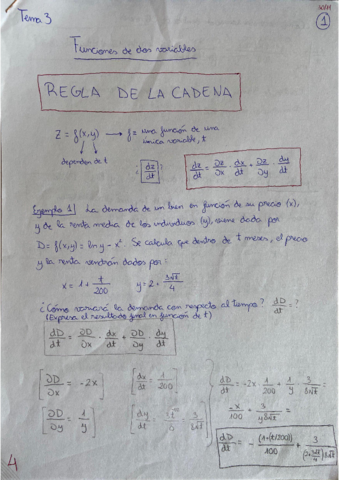 Tema 3
1
Funciones de dos variables
REGLA DE LA CADENA
Z = f(x,y) → f = una función de una
única variable, t
dependen de t
¿ dz/dt ?
dz/dt = ∂z/∂x · dx/dt + ∂z/∂y · dy/dt
Ejemplo 1 La demanda de un bien en función de su precio (x),
y de la renta media de los individuos (y), viene dada por
D = f(x,y) = ln y - x². Se calcula que dentro de t meses, el precio
y la renta vendrán dados por:
x = 1 + t/200 y = 2 + 3√t/4
¿Cómo variará la demanda con respecto al tiempo? dD/dt ?
(Expresa el resultado final en función de t)
dD/dt = ∂D/∂x · dx/dt + ∂D/∂y · dy/dt
[∂D/∂x = -2x] [dx/dt = 1/200] dD/dt = -2x · 1/200 + 1/y · 3/8√t =
[∂D/∂y = 1/y] -x/100 + 3/y8√t =
dD/dt = - (1+(t/200))/100 + 3/(2+3√t/4)8√t
4